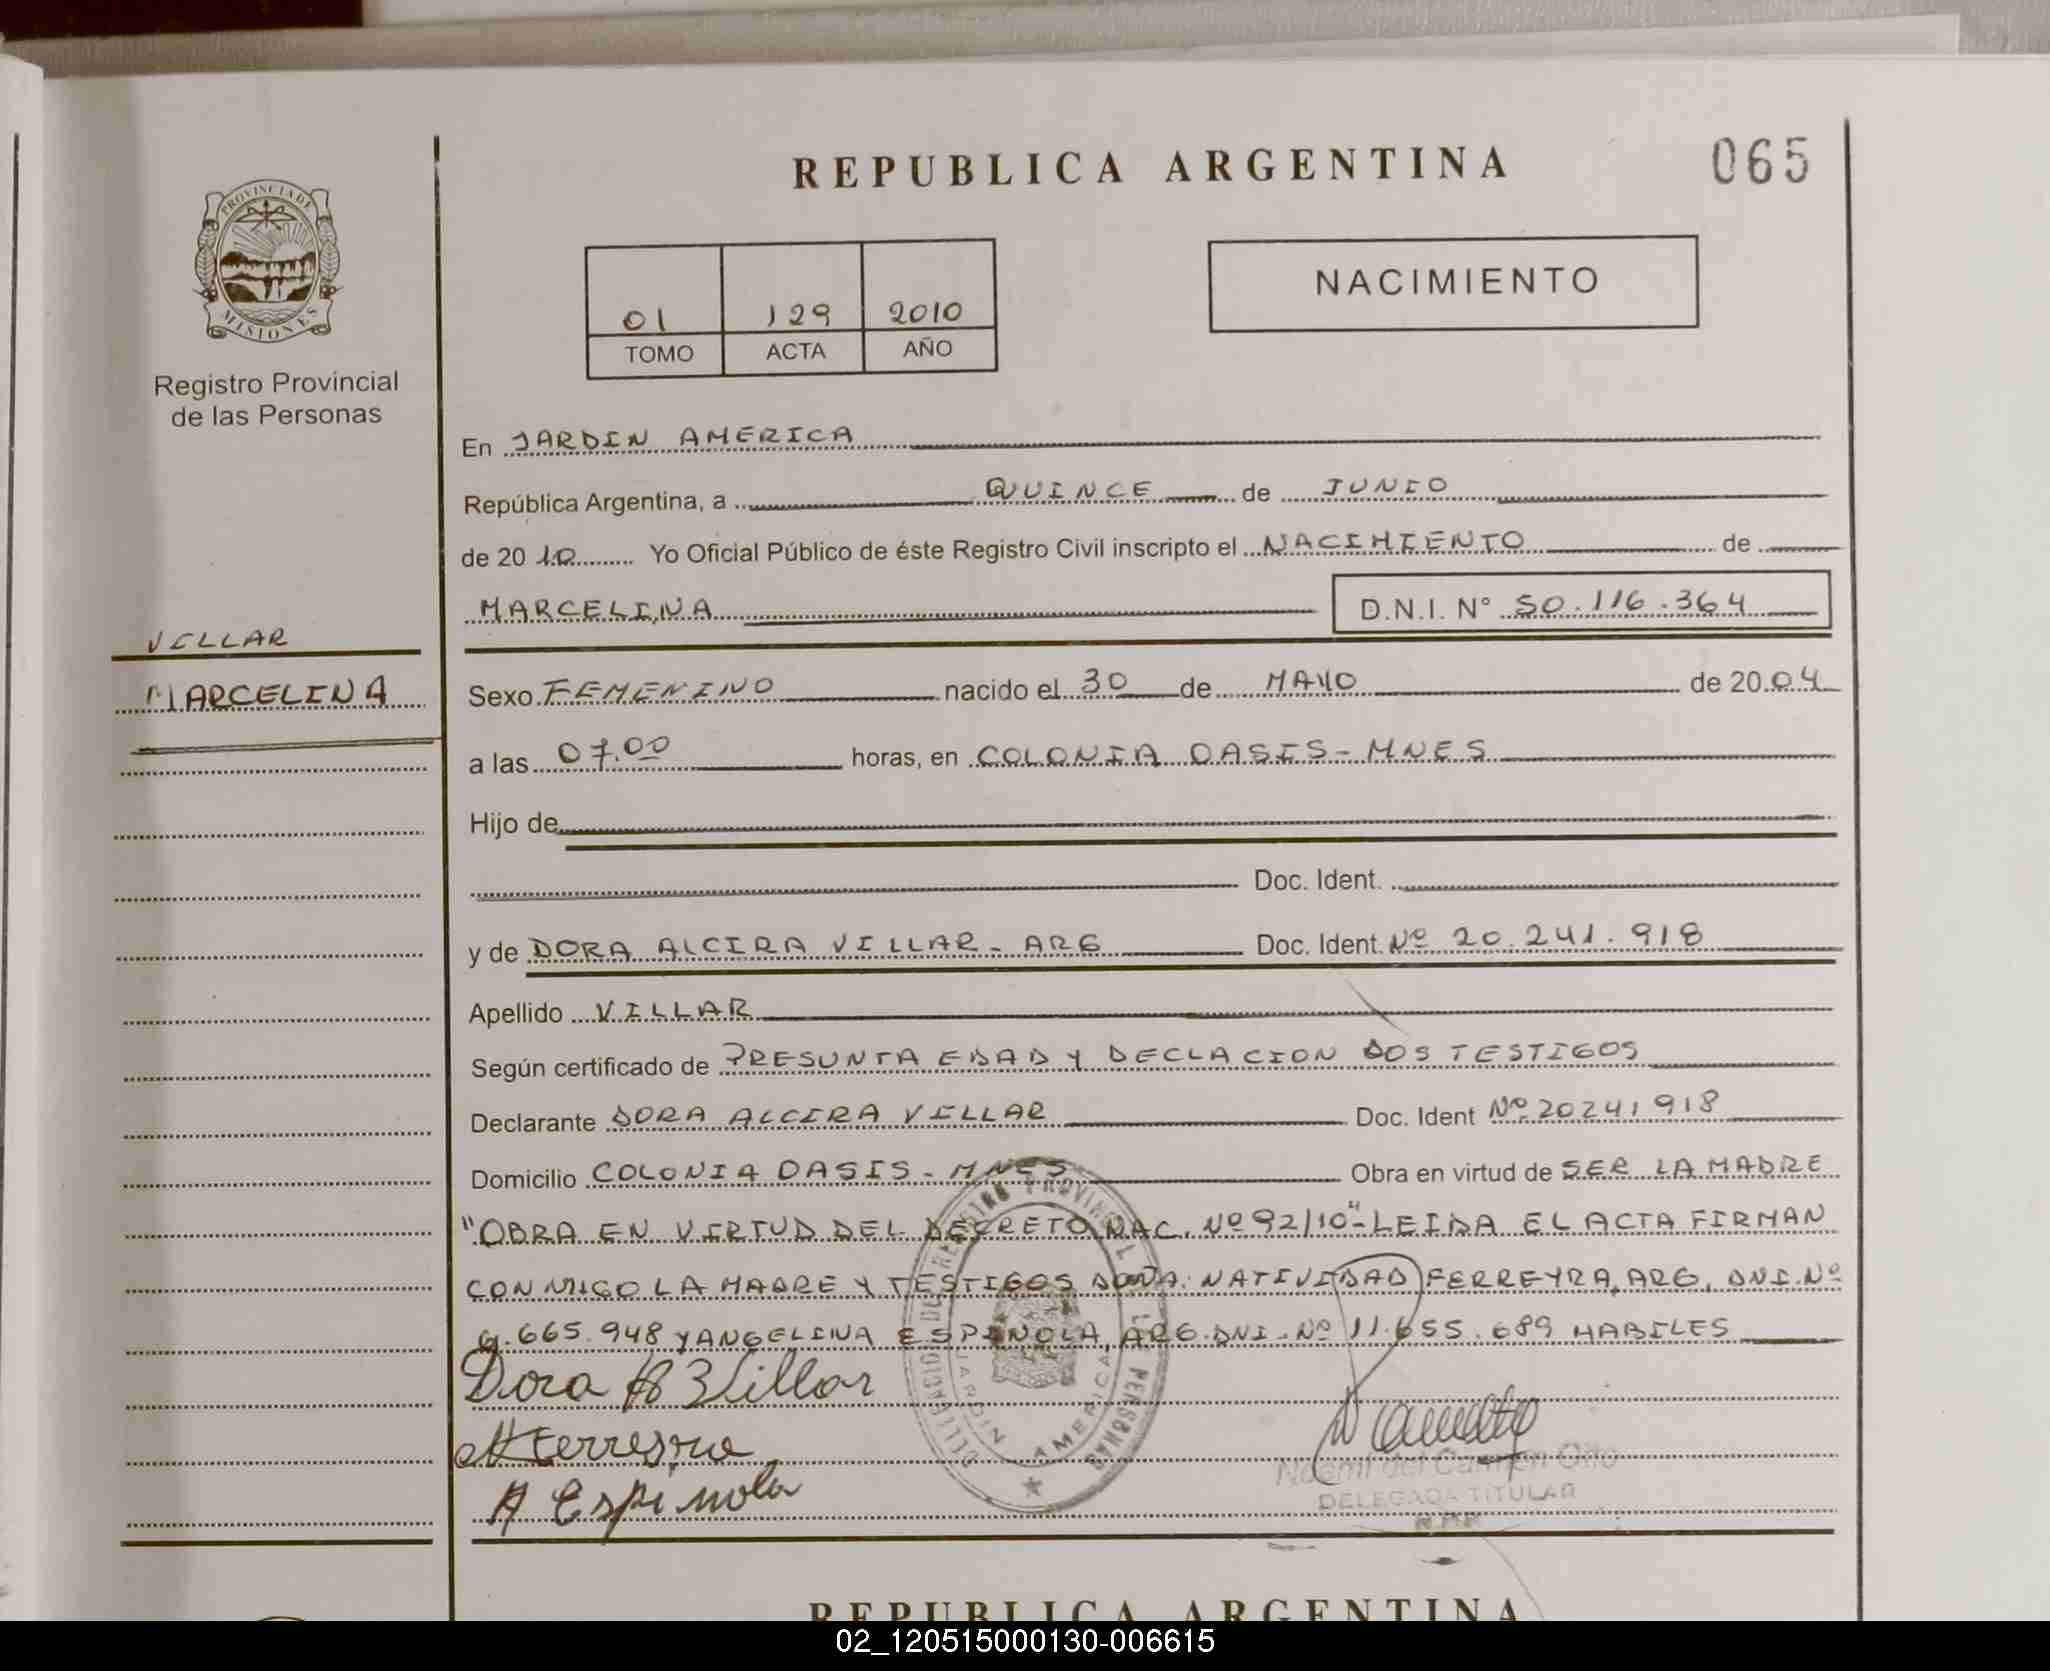 REPUBLICA ARGENTINA
065
PROVINCIA DE
MISIONES
Registro Provincial
de las Personas
01 129 2010
TOMO ACTA AÑO
NACIMIENTO
En JARDIN AMERICA
República Argentina, a QUINCE de JUNIO
de 2010 Yo Oficial Público de éste Registro Civil inscripto el NACIMIENTO de
MARCELINA D.N.I. N° 50.116.364
VILLAR
MARCELINA
Sexo FEMENINO nacido el 30 de MAYO de 2004
a las 07.00 horas, en COLONIA OASIS - MNES
Hijo de
Doc. Ident.
y de DORA ALCIRA VILLAR - ARG Doc. Ident. Nº 20.241.918
Apellido VILLAR
Según certificado de PRESUNTA EDAD Y DECLACION DOS TESTIGOS
Declarante DORA ALCIRA VILLAR Doc. Ident Nº 20241918
Domicilio COLONIA OASIS - MNES Obra en virtud de SER LA MADRE
"OBRA EN VIRTUD DEL DECRETO NAC. Nº 92/10"- LEIDA EL ACTA FIRMAN
CONMIGO LA MADRE Y TESTIGOS DOÑA: NATIVIDAD FERREYRA, ARG, DNI. Nº
.665.948 Y ANGELINA ESPINOLA, ARG. DNI. Nº 11.655.689 HABILES
Dora A Villar
N Ferreyra
A Espinola
JARDIN AMERICA
Noemi del Carmen Otto
DELEGADA TITULAR
REPUBLICA ARGENTINA
02_120515000130-006615